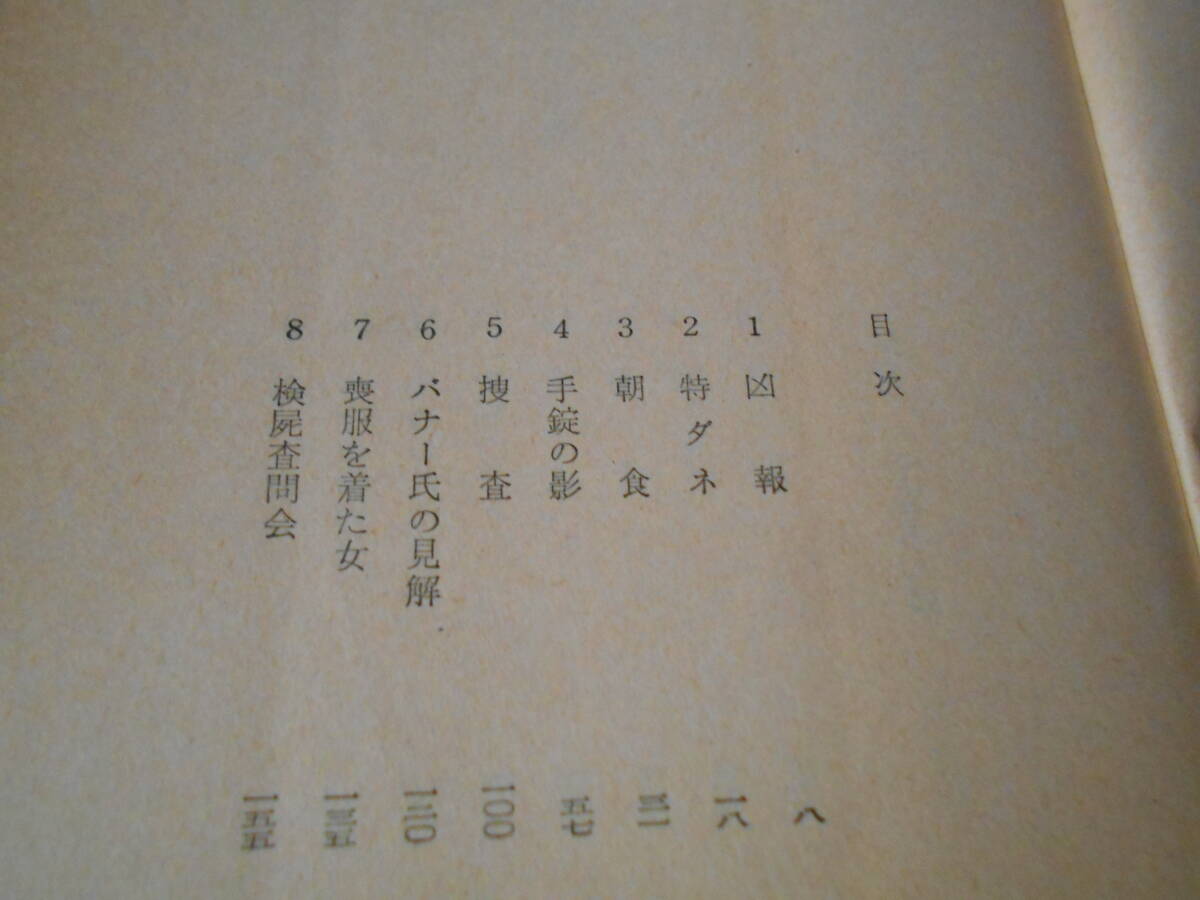 目次
1 凶報 八
2 特ダネ 一八
3 朝食 三一
4 手錠の影 五七
5 捜査 一〇〇
6 バナー氏の見解 一二〇
7 喪服を着た女 一三五
8 検屍査問会 一五五